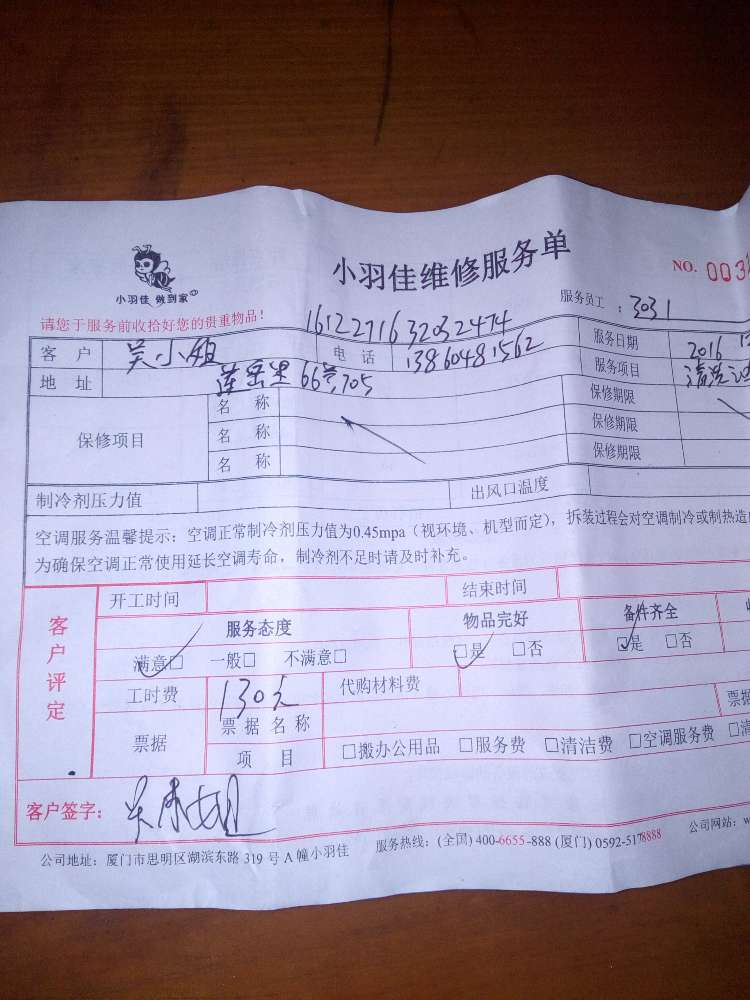 小羽佳 做到家
小羽佳维修服务单
NO. 003
请您于服务前收拾好您的贵重物品!
服务员工 : 3031
1612271632032474
客 户 吴小姐 电 话 13860481562 服务日期 2016
地 址 莲岳里66号705 服务项目 清洗
保修项目 名 称 保修期限
名 称 保修期限
名 称 保修期限
制冷剂压力值 出风口温度
空调服务温馨提示：空调正常制冷剂压力值为0.45mpa（视环境、机型而定），拆装过程会对空调制冷或制热造
为确保空调正常使用延长空调寿命，制冷剂不足时请及时补充。
客户评定
开工时间 结束时间
服务态度 物品完好 备件齐全
满意□ 一般□ 不满意□ □是 □否 □是 □否
工时费 130元 代购材料费
票据 票 据 名 称 票据
项 目 □搬办公用品 □服务费 □清洁费 □空调服务费 □清
客户签字：
公司地址：厦门市思明区湖滨东路 319 号 A 幢小羽佳 服务热线：(全国) 400-6655-888 (厦门) 0592-5178888 公司网站：w